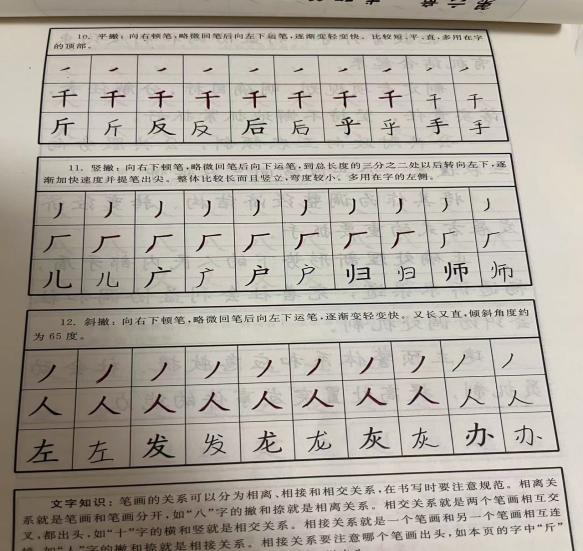 10. 平撇:向右下顿笔,略微回笔后向左下运笔,逐渐变轻变快。比较短、平、直,多用在字
的顶部。
㇒ ㇒ ㇒ ㇒ ㇒ ㇒ ㇒ ㇒ ㇒ ㇒
千 千 千 千 千 千 千 千 千 千
斤 斤 反 反 后 后 乎 乎 手 手
11. 竖撇:向右下顿笔,略微回笔后向下运笔,到总长度的三分之二处以后转向左下,逐
渐加快速度并提笔出尖。整体比较长而且竖立,弯度较小。多用在字的左侧。
丿 丿 丿 丿 丿 丿 丿 丿 丿 丿
厂 厂 厂 厂 厂 厂 厂 厂 厂 厂
儿 儿 广 广 户 户 归 归 师 师
12. 斜撇:向右下顿笔,略微回笔后向左下运笔,逐渐变轻变快。又长又直,倾斜角度约
为 65 度。
丿 丿 丿 丿 丿 丿 丿 丿 丿 丿
人 人 人 人 人 人 人 人 人 人
左 左 发 发 龙 龙 灰 灰 办 办
文字知识:笔画的关系可以分为相离、相接和相交关系,在书写时要注意规范。相离关
系就是笔画和笔画分开,如“八”字的撇和捺就是相离关系。相交关系就是两个笔画相互交
叉,都出头,如“十”字的横和竖就是相交关系。相接关系就是一个笔画和另一个笔画相互连
接,如“人”字的撇和捺就是相接关系。相接关系要注意哪个笔画出头,如本页的字中“斤”